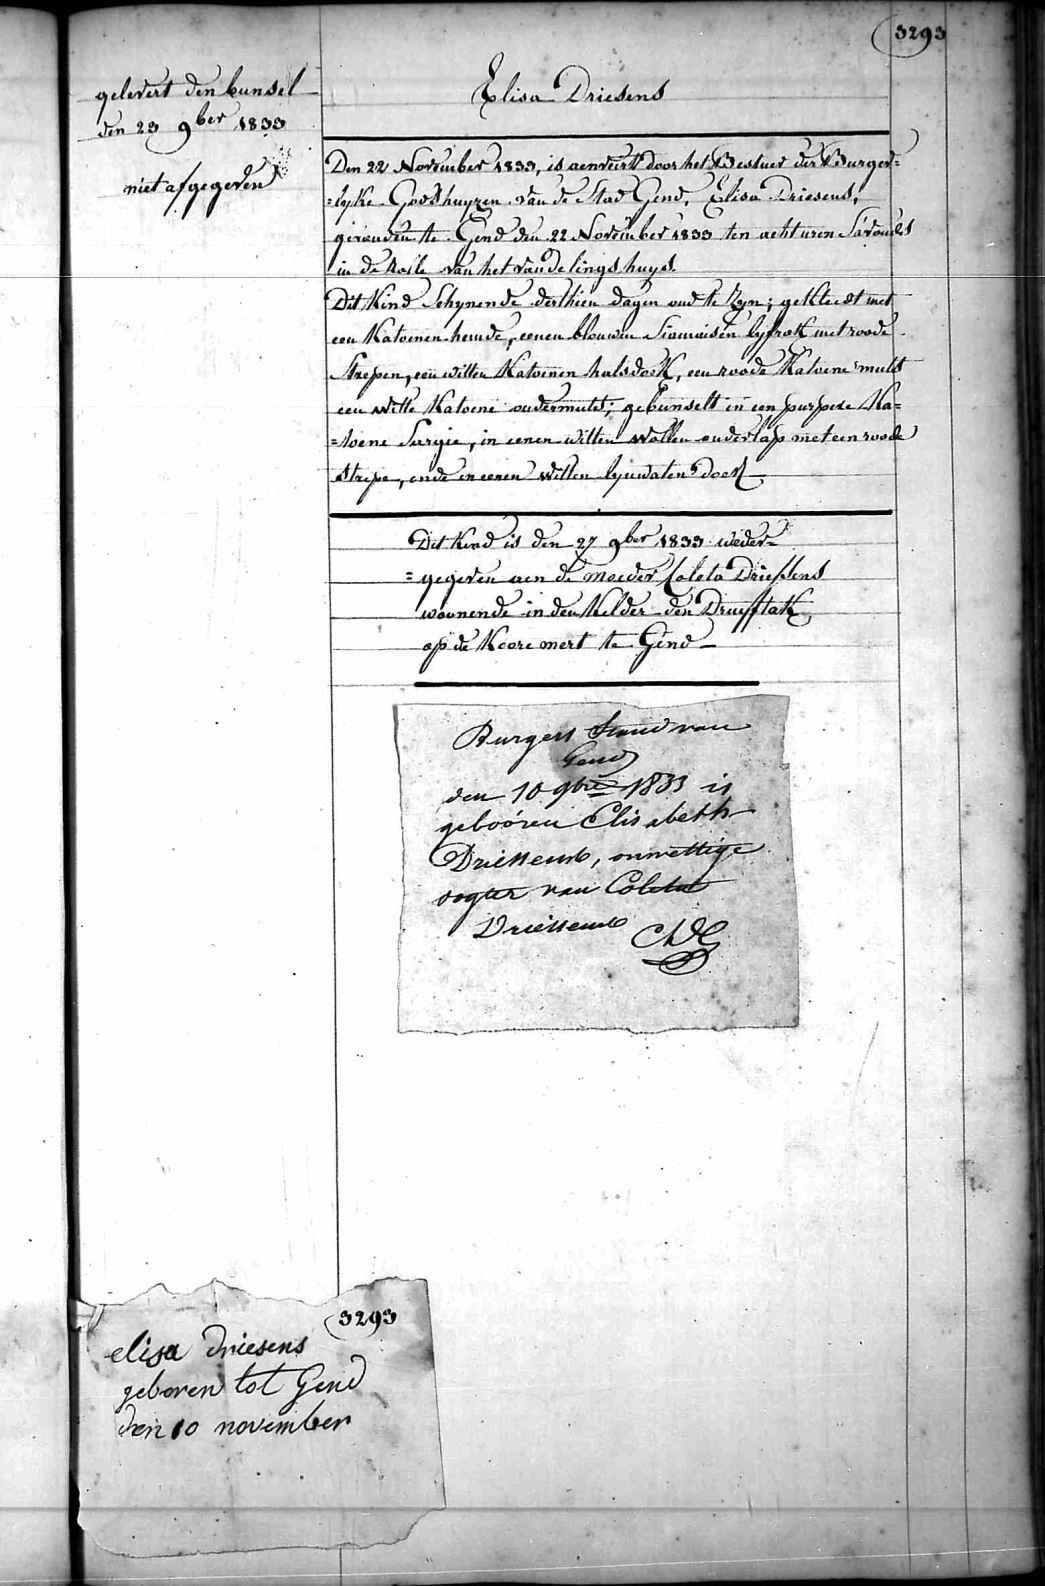 3293
gelevert den bunsel
den 23 9ber 1833
niet afgegeven
Elisa Driesens
Den 22 November 1833, is aenveert door het Bestuer der Burger=
=lyke Godshuyzen van de Stad Gend, Elisa Driesens,
gevonden te Gend den 22 November 1833 ten acht uren S'avonds
in de Rolle van het vondelingshuys.
Dit Kind Schynende derthien dagen oud te Zyn; gekleedt met
een Katoenen hemde, eenen blauwen Siamoisen lyfrok met roode
Strepen, een witten Katoenen halsdoek, een roode Katoene muts
een witte Katoene ondermuts; gebunselt in een purpere Ka=
=toene Surgie, in eenen witten wollen onderlap met een roode
Strepe, ende in eenen witten lynwaten doek
Dit Kind is den 27 9ber 1833 weder=
=gegeven aen de moeder Coleta Driessens
woonende in den Kelder den Druyftak
op de Koore mert te Gend
Burgers Stand van
Gend
den 10 9bre 1833 is
gebooren Elisabeth
Driessens, onwettige
dogter van Coleta
Driessens
3293
elisa driesens
geboren tot Gend
den 10 november